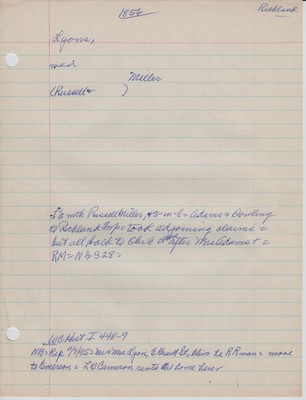 1856
Richland
Lyons,
med
Miller
(Russell + )
S E with Russell Miller, + s-in-l = Adams = Dowling
to Richland Twp = took adjoining claims =
but all back to Ohio after Mrs Adams + =
RM = N B 328 =
WC Hist I 448-9
NB = Rep. 1/9/45 = Mr + Mrs Lyon, E Grant St, he RR man = move
to Emerson = L B Cameron rents the home here